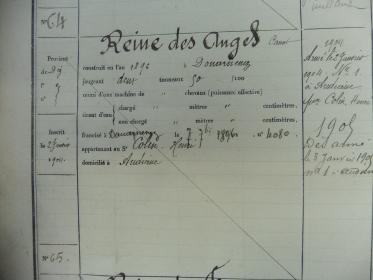 N° 64
Reine des Anges Canot
construit en l'an 1896 à Douarnenez
jaugeant deux tonneaux 50 /100
muni d'une machine de » chevaux (puissance effective)
tirant d'eau
chargé mètre centimètres.
non chargé mètre centimètres.
francisé à Douarnenez le 7 7bre 1896 n° 4080
appartenant au Sr Colin Henri
domicilié à Audierne
Provient
de D9
f° 7
Inscrit
le 2 Janvier
1904
1904
Armé le 2 Janvier
1904, N° 1
à Audierne
par Colin Henri
1905
Désarmé
le 3 Janvier 1905
n° 1 à
N° 65